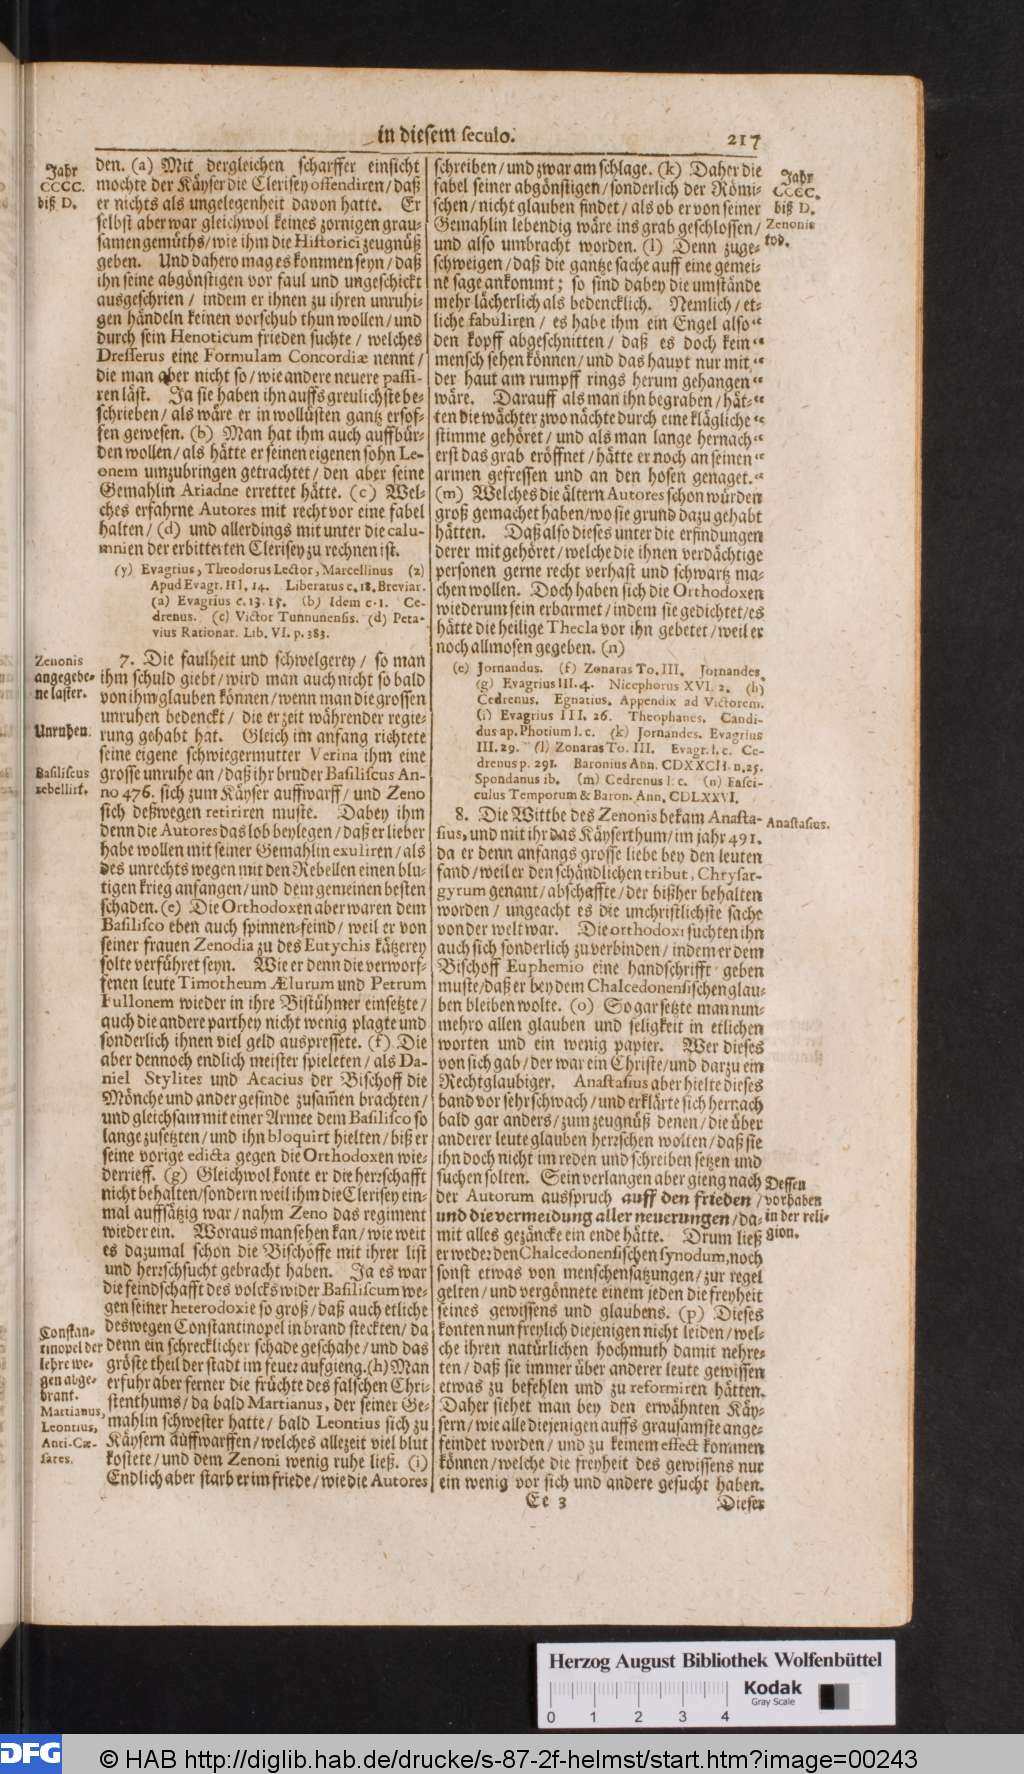 in diesem seculo.
217
Jahr
CCCC.
biß D.
den. (a) Mit dergleichen scharffer einsicht
mochte der Käyser die Clerisey offendiren/ daß
er nichts als ungelegenheit davon hatte. Er
selbst aber war gleichwol keines zornigen grau-
samen gemüths/ wie ihm die Historici zeugnüß
geben. Und dahero mag es kommen seyn/ daß
ihn seine abgönstigen vor faul und ungeschickt
ausgeschrien / indem er ihnen zu ihren unruhi-
gen händeln keinen vorschub thun wollen/ und
durch sein Henoticum frieden suchte / welches
Dresserus eine Formulam Concordiæ nennt/
die man aber nicht so/ wie andere neuere passi-
ren läst. Ja sie haben ihn auffs greulichste be-
schrieben/ als wäre er in wollüsten gantz ersof-
fen gewesen. (b) Man hat ihm auch auffbür-
den wollen/ als hätte er seinen eigenen sohn Le-
onem umzubringen getrachtet/ den aber seine
Gemahlin Ariadne errettet hätte. (c) Wel-
ches erfahrne Autores mit recht vor eine fabel
halten/ (d) und allerdings mit unter die calu-
mnien der erbitterten Clerisey zu rechnen ist.
(y) Evagrius, Theodorus Lector, Marcellinus (z)
Apud Evagr. III, 14. Liberatus c. 18. Breviar.
(a) Evagrius c. 13. 15. (b) Idem c. 1. Ce-
drenus. (c) Victor Tunnunensis. (d) Peta-
vius Rationar. Lib. VI. p. 383.
Zenonis
angegebe-
ne laster.
Unruhen.
Basiliscus
rebellirt.
7. Die faulheit und schwelgerey / so man
ihm schuld giebt/ wird man auch nicht so bald
von ihm glauben können/ wenn man die grossen
unruhen bedenckt/ die er zeit währender regie-
rung gehabt hat. Gleich im anfang richtete
seine eigene schwiegermutter Verina ihm eine
grosse unruhe an/ daß ihr bruder Basiliscus An-
no 476. sich zum Käyser auffwarff/ und Zeno
sich deßwegen retiriren muste. Dabey ihm
denn die Autores das lob beylegen/ daß er lieber
habe wollen mit seiner Gemahlin exuliren/ als
des unrechts wegen mit den Rebellen einen blu-
tigen krieg anfangen/ und dem gemeinen besten
schaden. (e) Die Orthodoxen aber waren dem
Basilisco eben auch spinnen-feind/ weil er von
seiner frauen Zenodia zu des Eutychis kätzerey
solte verführet seyn. Wie er denn die verworf-
fenen leute Timotheum Ælurum und Petrum
Fullonem wieder in ihre Bistühmer einsetzte/
auch die andere parthey nicht wenig plagte und
sonderlich ihnen viel geld auspressete. (f) Die
aber dennoch endlich meister spieleten/ als Da-
niel Stylites und Acacius der Bischoff die
Mönche und ander gesinde zusam̃en brachten/
und gleichsam mit einer Armee dem Basilisco so
lange zusetzten/ und ihn bloquirt hielten/ biß er
seine vorige edicta gegen die Orthodoxen wie-
derrieff. (g) Gleichwol konte er die herrschafft
nicht behalten/ sondern weil ihm die Clerisey ein-
mal auffsätzig war/ nahm Zeno das regiment
wieder ein. Woraus man sehen kan/ wie weit
es dazumal schon die Bischöffe mit ihrer list
und herrschsucht gebracht haben. Ja es war
die feindschafft des volcks wider Basiliscum we-
gen seiner heterodoxie so groß/ daß auch etliche
deswegen Constantinopel in brand steckten/ da
denn ein schrecklicher schade geschahe/ und das
gröste theil der stadt im feuer auffgieng. (h) Man
erfuhr aber ferner die früchte des falschen Chri-
stenthums/ da bald Martianus, der seiner Ge-
mahlin schwester hatte/ bald Leontius sich zu
Käysern auffwarffen/ welches allezeit viel blut
kostete/ und dem Zenoni wenig ruhe ließ. (i)
Endlich aber starb er im friede/ wie die Autores
Constan-
tinopel der
lehre we-
gen abge-
brant.
Martianus,
Leontius,
Anti-Cæ-
sares.
schreiben/ und zwar am schlage. (k) Daher die
fabel seiner abgönstigen/ sonderlich der Römi-
schen/ nicht glauben findet/ als ob er von seiner
Gemahlin lebendig wäre ins grab geschlossen/
und also umbracht worden. (l) Denn zuge-
schweigen/ daß die gantze sache auff eine gemei-
ne sage ankommt; so sind dabey die umstände
mehr lächerlich als bedencklich. Nemlich/ et-
liche fabuliren / es habe ihm ein Engel also“
den kopff abgeschnitten/ daß es doch kein“
mensch sehen können/ und das haupt nur mit“
der haut am rumpff rings herum gehangen“
wäre. Darauff als man ihn begraben/ hät-“
ten die wächter zwo nächte durch eine klägliche“
stimme gehöret/ und als man lange hernach“
erst das grab eröffnet/ hätte er noch an seinen“
armen gefressen und an den hosen genaget.“
(m) Welches die ältern Autores schon würden
groß gemachet haben/ wo sie grund dazu gehabt
hätten. Daß also dieses unter die erfindungen
derer mit gehöret/ welche die ihnen verdächtige
personen gerne recht verhast und schwartz ma-
chen wollen. Doch haben sich die Orthodoxen
wiederum sein erbarmet/ indem sie gedichtet/ es
hätte die heilige Thecla vor ihn gebetet/ weil er
noch allmosen gegeben. (n)
(e) Jornandus. (f) Zonaras To. III. Jornandes.
(g) Evagrius III. 4. Nicephorus XVI. 2. (h)
Cedrenus. Egnatius. Appendix ad Victorem.
(i) Evagrius III. 26. Theophanes. Candi-
dus ap. Photium l. c. (k) Jornandes. Evagrius
III. 29. (l) Zonaras To. III. Evagr. l. c. Ce-
drenus p. 291. Baronius Ann. CDXXCII. n. 25.
Spondanus ib. (m) Cedrenus l. c. (n) Fasci-
culus Temporum & Baron. Ann. CDLXXVI.
8. Die Wittbe des Zenonis bekam Anasta-
sius, und mit ihr das Käyserthum/ im jahr 491.
da er denn anfangs grosse liebe bey den leuten
fand/ weil er den schändlichen tribut, Chrysar-
gyrum genant/ abschaffte/ der bißher behalten
worden/ ungeacht es die unchristlichste sache
von der welt war. Die orthodoxi suchten ihn
auch sich sonderlich zu verbinden/ indem er dem
Bischoff Euphemio eine handschrifft geben
muste/ daß er bey dem Chalcedonensischen glau-
ben bleiben wolte. (o) So gar setzte man nun-
mehro allen glauben und seligkeit in etlichen
worten und ein wenig papier. Wer dieses
von sich gab/ der war ein Christe/ und darzu ein
Rechtglaubiger. Anastasius aber hielte dieses
band vor sehr schwach/ und erklärte sich hernach
bald gar anders/ zum zeugnüß denen/ die über
anderer leute glauben herrschen wolten/ daß sie
ihn doch nicht im reden und schreiben setzen und
suchen solten. Sein verlangen aber gieng nach
der Autorum ausspruch auff den frieden /
und die vermeidung aller neuerungen/ da-
mit alles gezäncke ein ende hätte. Drum ließ
er weder den Chalcedonensischen synodum, noch
sonst etwas von menschensatzungen/ zur regel
gelten/ und vergönnete einem jeden die freyheit
seines gewissens und glaubens. (p) Dieses
konten nun freylich diejenigen nicht leiden/ wel-
che ihren natürlichen hochmuth damit nehre-
ten/ daß sie immer über anderer leute gewissen
etwas zu befehlen und zu reformiren hätten.
Daher siehet man bey den erwähnten Käy-
sern/ wie alle diejenigen auffs grausamste ange-
feindet worden/ und zu keinem effect kommen
können/ welche die freyheit des gewissens nur
ein wenig vor sich und andere gesucht haben.
Jahr
CCCC.
biß D.
Zenonis
tod.
Anastasius.
Dessen
vorhaben
in der reli-
gion.
Ee 3
Dieser
Herzog August Bibliothek Wolfenbüttel
Kodak
Gray Scale
0 1 2 3 4
DFG
© HAB http://diglib.hab.de/drucke/s-87-2f-helmst/start.htm?image=00243